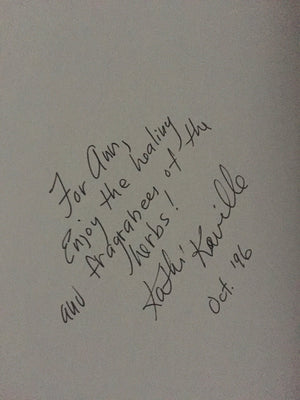 For Ann,
Enjoy the healing
and fragrances of the
herbs!
Kathi Keville
Oct. '96